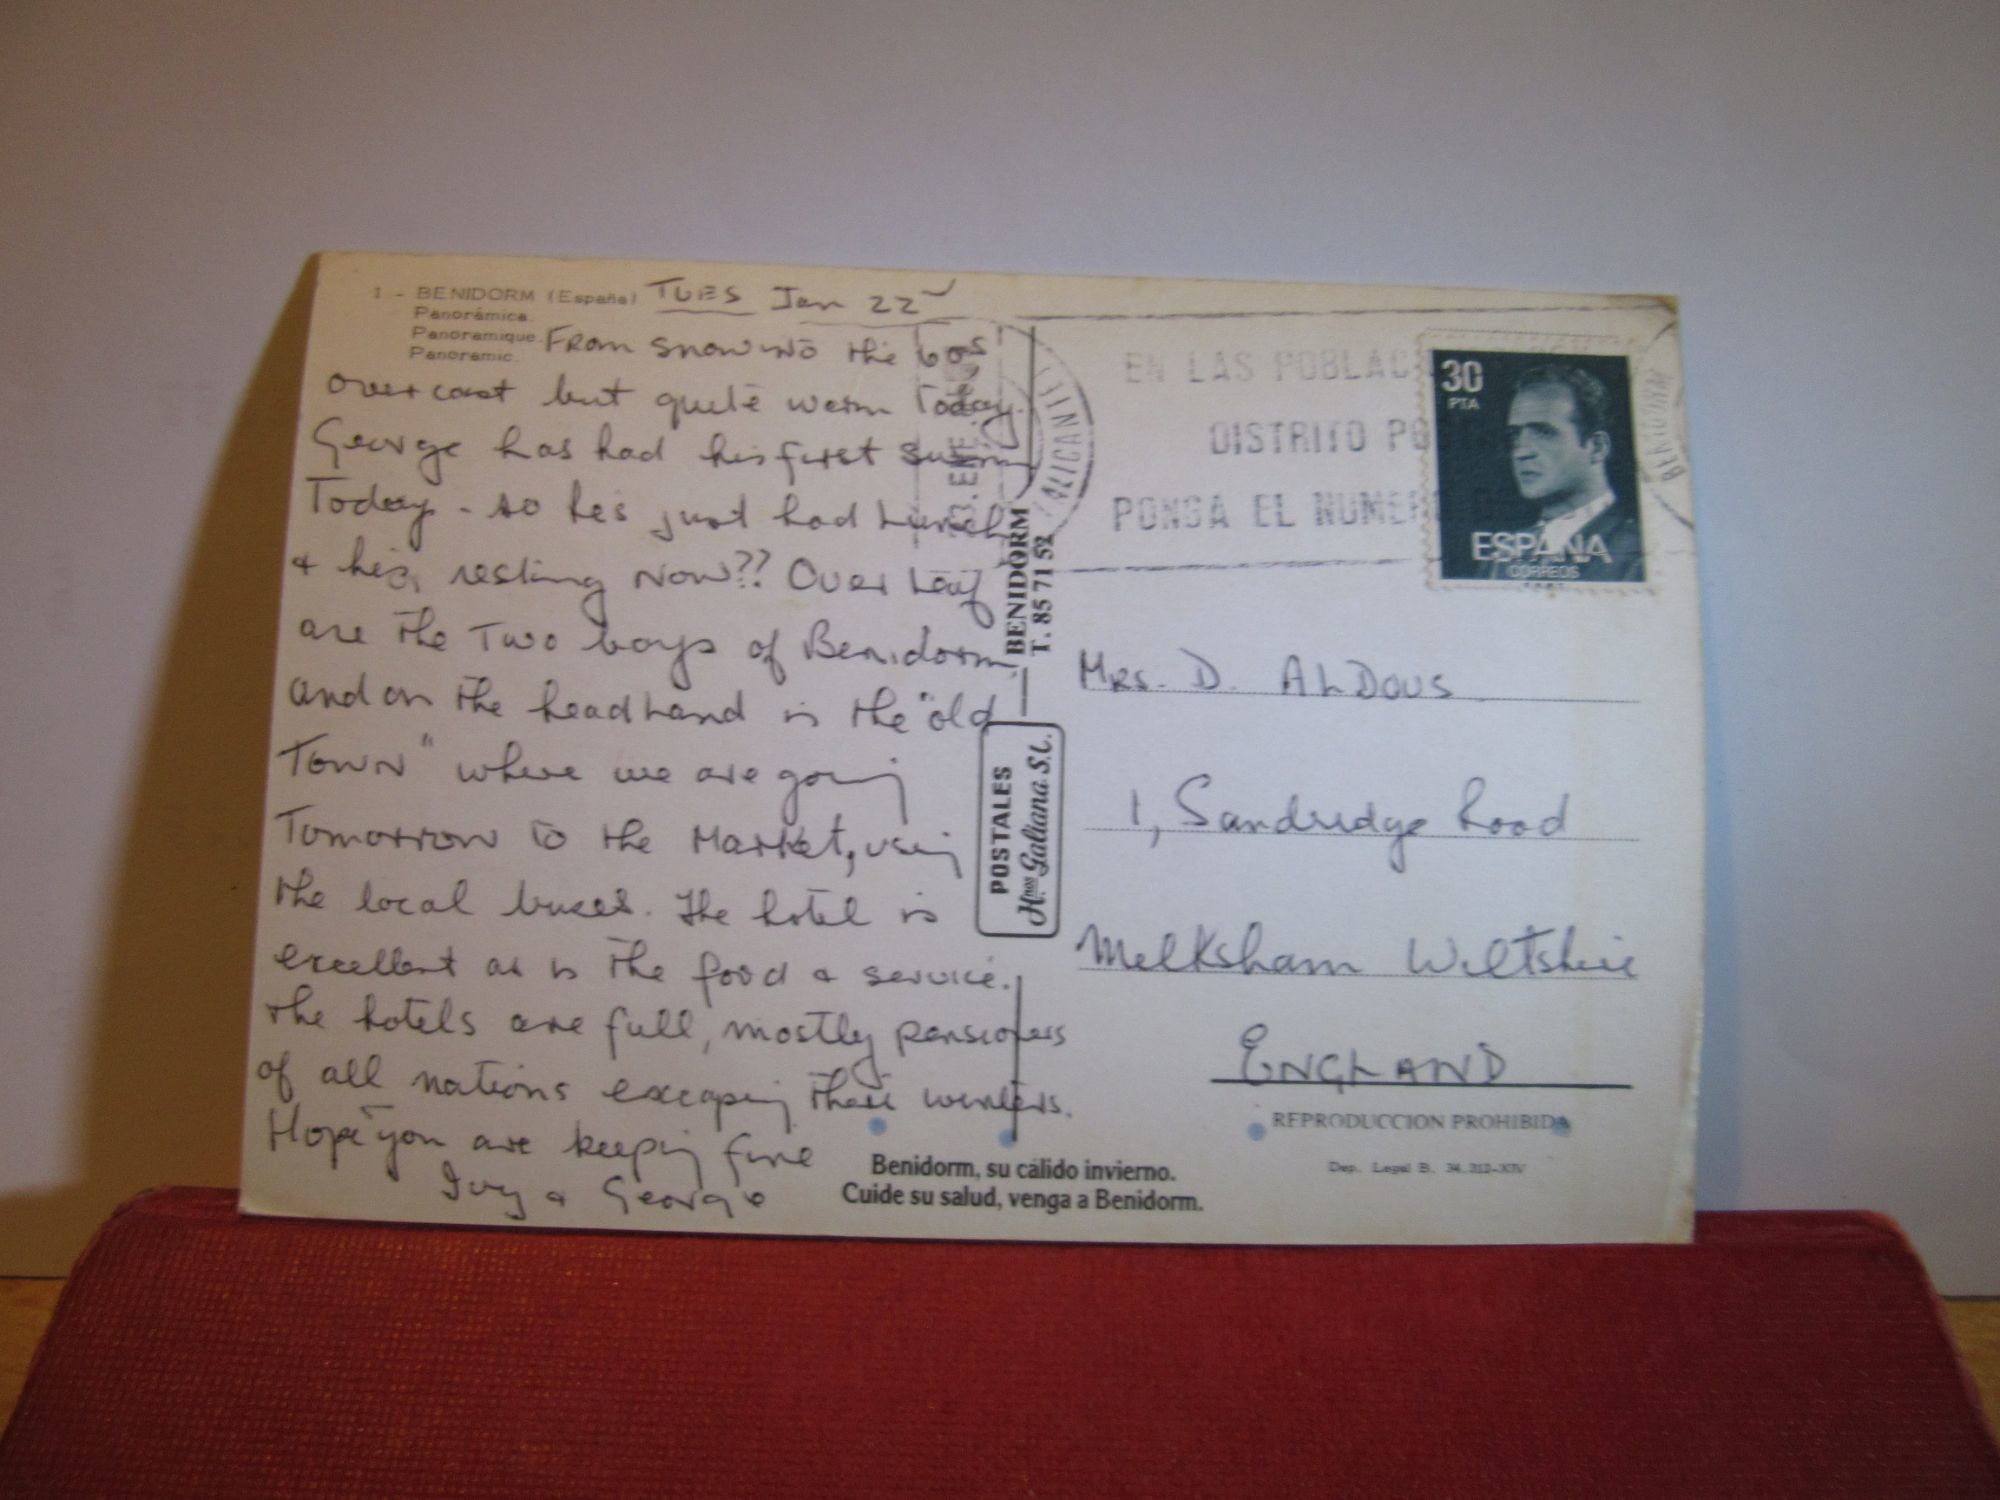 1 - BENIDORM (España)
Panorámica.
Panoramique.
Panoramic.
TUES Jan 22
From snow into the 60s
overcast but quite warm Today.
George has had his first swim
Today - so he's just had Lunch
& he's resting Now?? Over Leaf
are the Two bays of Benidorm
and on the headland is the "old
Town" where we are going
Tomorrow to the Market, using
the local buses. The hotel is
excellent as is the food & service.
The hotels are full, mostly pensioners
of all nations excaping their winters.
Hope you are keeping fine
Ivy & George
BENIDORM
T. 85 71 52
POSTALES
Hnos Galiana S.L.
ALICANTE
BENIDORM
EN LAS POBLAC
DISTRITO PO
PONGA EL NUMER
30
PTA
ESPAÑA
CORREOS
Mrs. D. ALDOUS
1, Sandridge Road
Melksham Wiltshire
ENGLAND
REPRODUCCION PROHIBIDA
Dep. Legal B. 34.312-XIV
Benidorm, su cálido invierno.
Cuide su salud, venga a Benidorm.